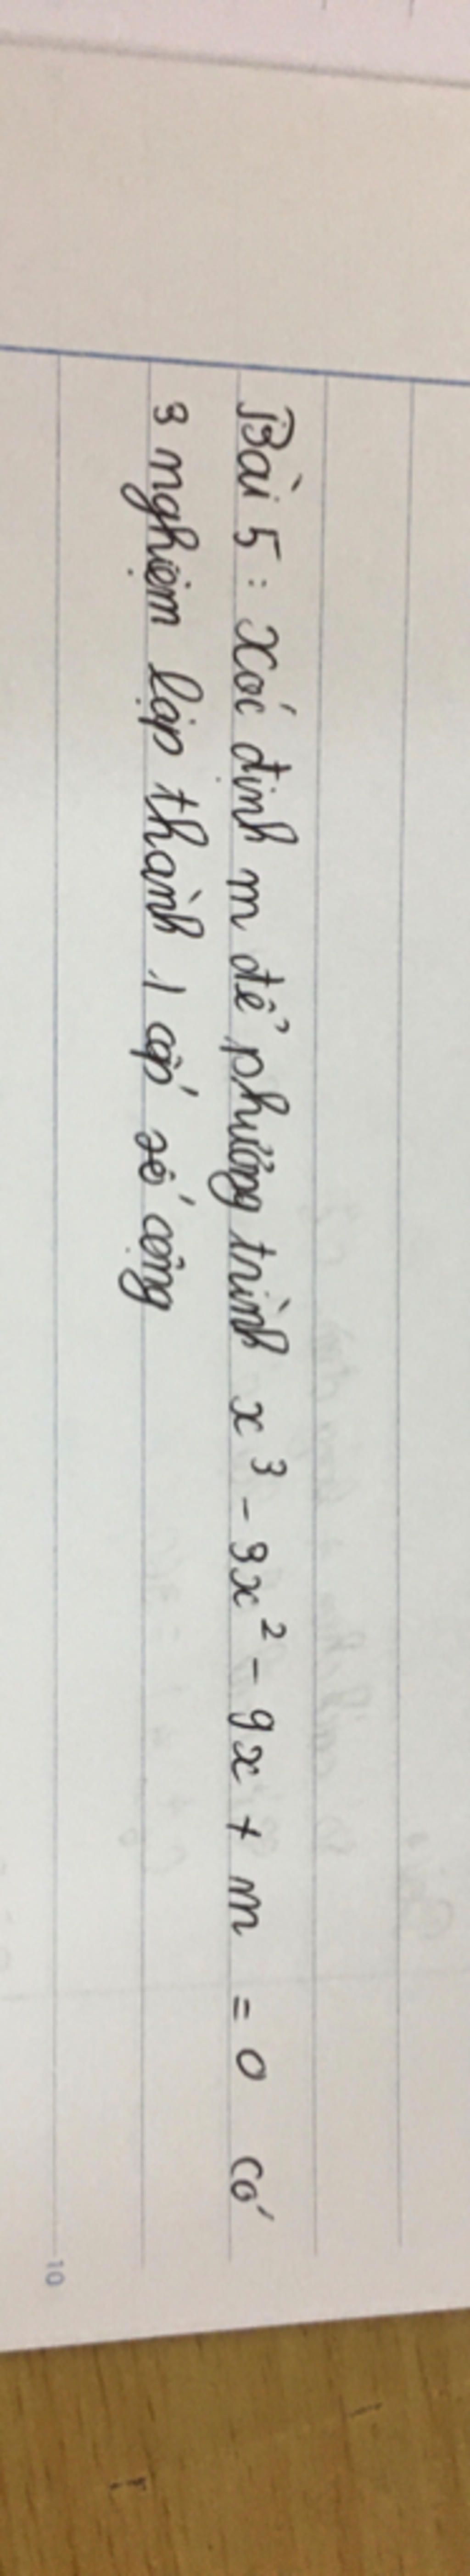 Bài 5 : Xác định m để phương trình x³ - 9x² - 9x + m = 0 có
3 nghiệm lập thành 1 cấp số cộng
10